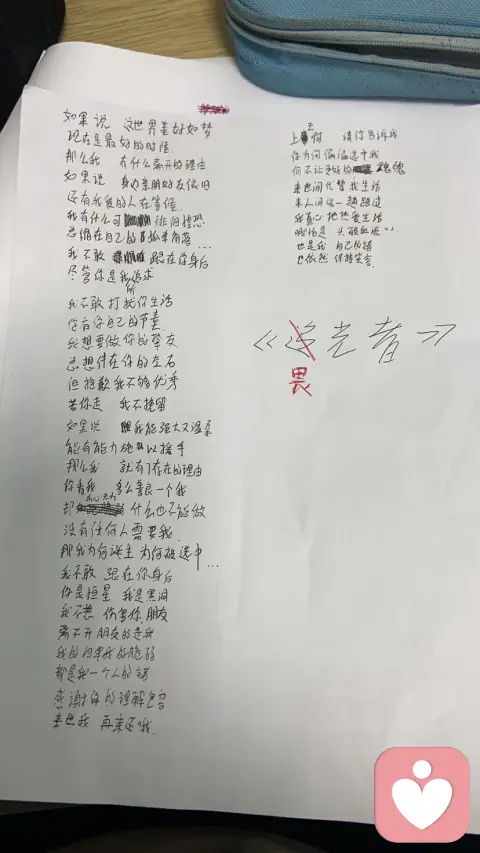 如果说 这世界美好如梦
现在是最好的时候
那么我 有什么离开的理由
如果说 身边亲朋好友依旧
还有我爱的人在等候
我有什么可 徘徊惶恐
总缩在自己的 孤单角落...
我不敢 跟在你身后
尽管你是我所追求
我不敢打扰你生活
你有你自己的节奏
我想要做你的挚友
总想伴在你的左右
但抱歉我不够优秀
若你走 我不挽留
如果说 我能强大又温柔
能有能力施以援手
那么我 就有了存在的理由
你看我 多么善良一个我
却有心无力 什么也不能做
没有任何人需要我
那我为何诞生 为何被选中...
我不敢 跟在你身后
你是恒星 我是黑洞
我不想 伤害你,朋友
离不开朋友的是我
我的自卑我的脆弱
都是我一个人的错
感谢你的理解包容
来世我 再来还哦.
上天啊 请你告诉我
你为何偏偏选中我
何不让更好的 魂魄
来世间代替我生活
来人间这一趟路途
我真心地热爱生活
哪怕是 头破血流
也是我 自己的错
也依然 保持笑容.
《追光者》
畏